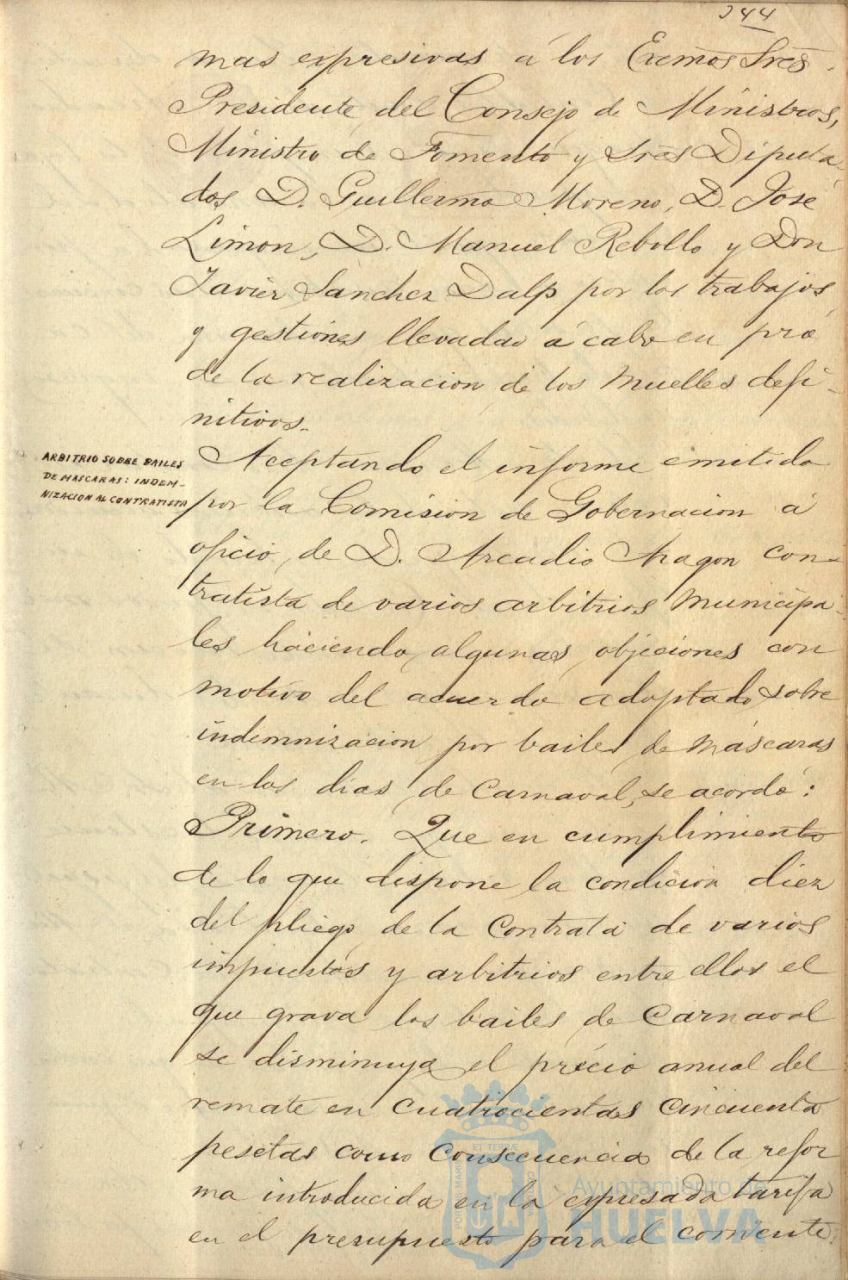 344
mas expresivas á los Exemos Sres.
Presidente del Consejo de Ministros,
Ministro de Fomento y Sres Diputa-
dos D. Guillermo Moreno, D. José
Limon, D. Manuel Rebollo y Don
Javier Sanchez Dalp por los trabajos
y gestiones llevadas á cabo en pro
de la realizacion de los muelles defi-
nitivos.
ARBITRIO SOBRE BAILES
DE MASCARAS: INDEM-
NIZACION AL CONTRATISTA
Aceptando el informe emitido
por la Comision de Gobernacion á
oficio de D. Arcadio Aragon con-
tratista de varios arbitrios municipa-
les haciendo algunas objeciones con
motivo del acuerdo adoptado sobre
indemnizacion por bailes de máscaras
en los dias de Carnaval, se acordó:
Primero. Que en cumplimiento
de lo que dispone la condicion diez
del pliego de la contrata de varios
impuestos y arbitrios entre ellos el
que grava los bailes de Carnaval
se disminuya el precio anual del
remate en cuatrocientas cincuenta
pesetas como consecuencia de la refor
ma introducida en la expresada tarifa
en el presupuesto para el corriente
Ayuntamiento de
HUELVA